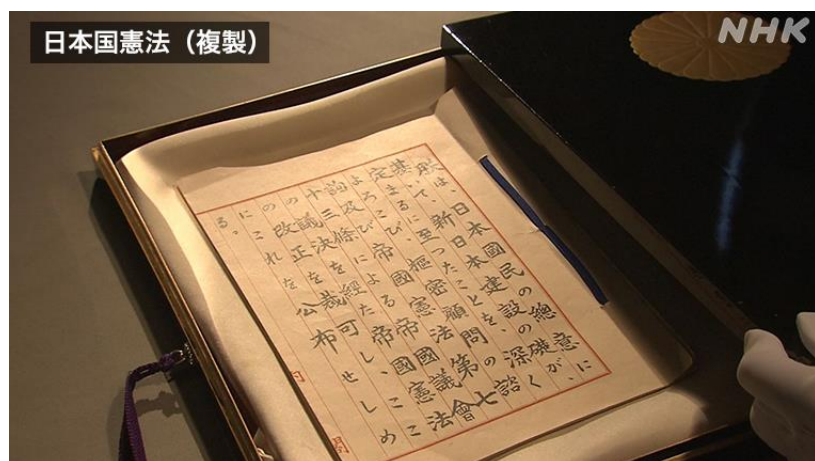 日本国憲法（複製）
NHK
朕は、日本國民の總意に
基いて、新日本建設の礎が、
定まるに至つたことを、深く
よろこび、樞密顧問の諮
詢及び帝國憲法第七
十三條による帝國議會
の議決を經た帝國憲法
の改正を裁可し、ここ
にこれを公布せしめ
る。
内閣